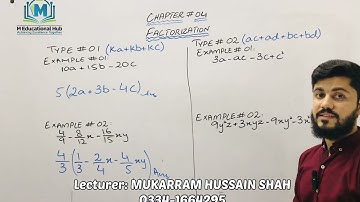 M Educational Hub
Achieving Excellence Together
CHAPTER # 04
FACTORIZATION
TYPE # 01 (Ka+Kb+KC)
EXAMPLE # 01:
10a + 15b - 20C
5(2a+3b-4C) Ans
EXAMPLE # 02:
4/9 - 8/12 x - 16/15 xy
4/3 (1/3 - 2/4 x - 4/5 xy) Ans
TYPE # 02 (ac+ad+bc+bd)
EXAMPLE # 01:
3a - ac - 3c + c²
EXAMPLE # 02:
Lecturer: MUKARRAM HUSSAIN SHAH
0334-1664295